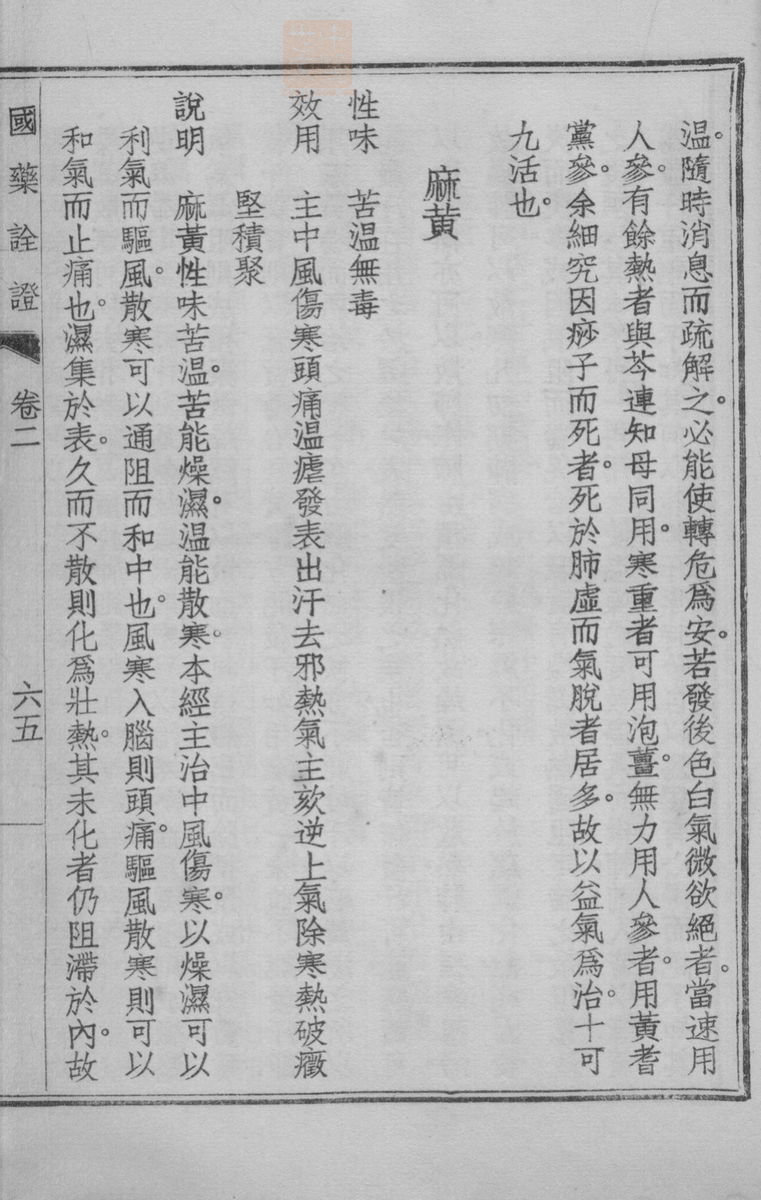 温。隨時消息而疏解之。必能使轉危爲安。若發後色白氣微欲絕者。當速用
人參。有餘熱者與芩連知母同用。寒重者可用泡薑。無力用人參者。用黃耆
黨參。余細究因痧子而死者。死於肺虛而氣脫者居多。故以益氣爲治。十可
九活也。
麻黃
性味　苦温無毒
效用　主中風傷寒頭痛温瘧發表出汗去邪熱氣主欬逆上氣除寒熱破癥
堅積聚
說明　麻黃性味苦温。苦能燥濕。温能散寒。本經主治中風傷寒。以燥濕可以
利氣而驅風。散寒可以通阻而和中也。風寒入腦則頭痛。驅風散寒則可以
和氣而止痛也。濕集於表。久而不散則化爲壯熱。其未化者仍阻滯於內。故
國藥詮證　卷二　六五